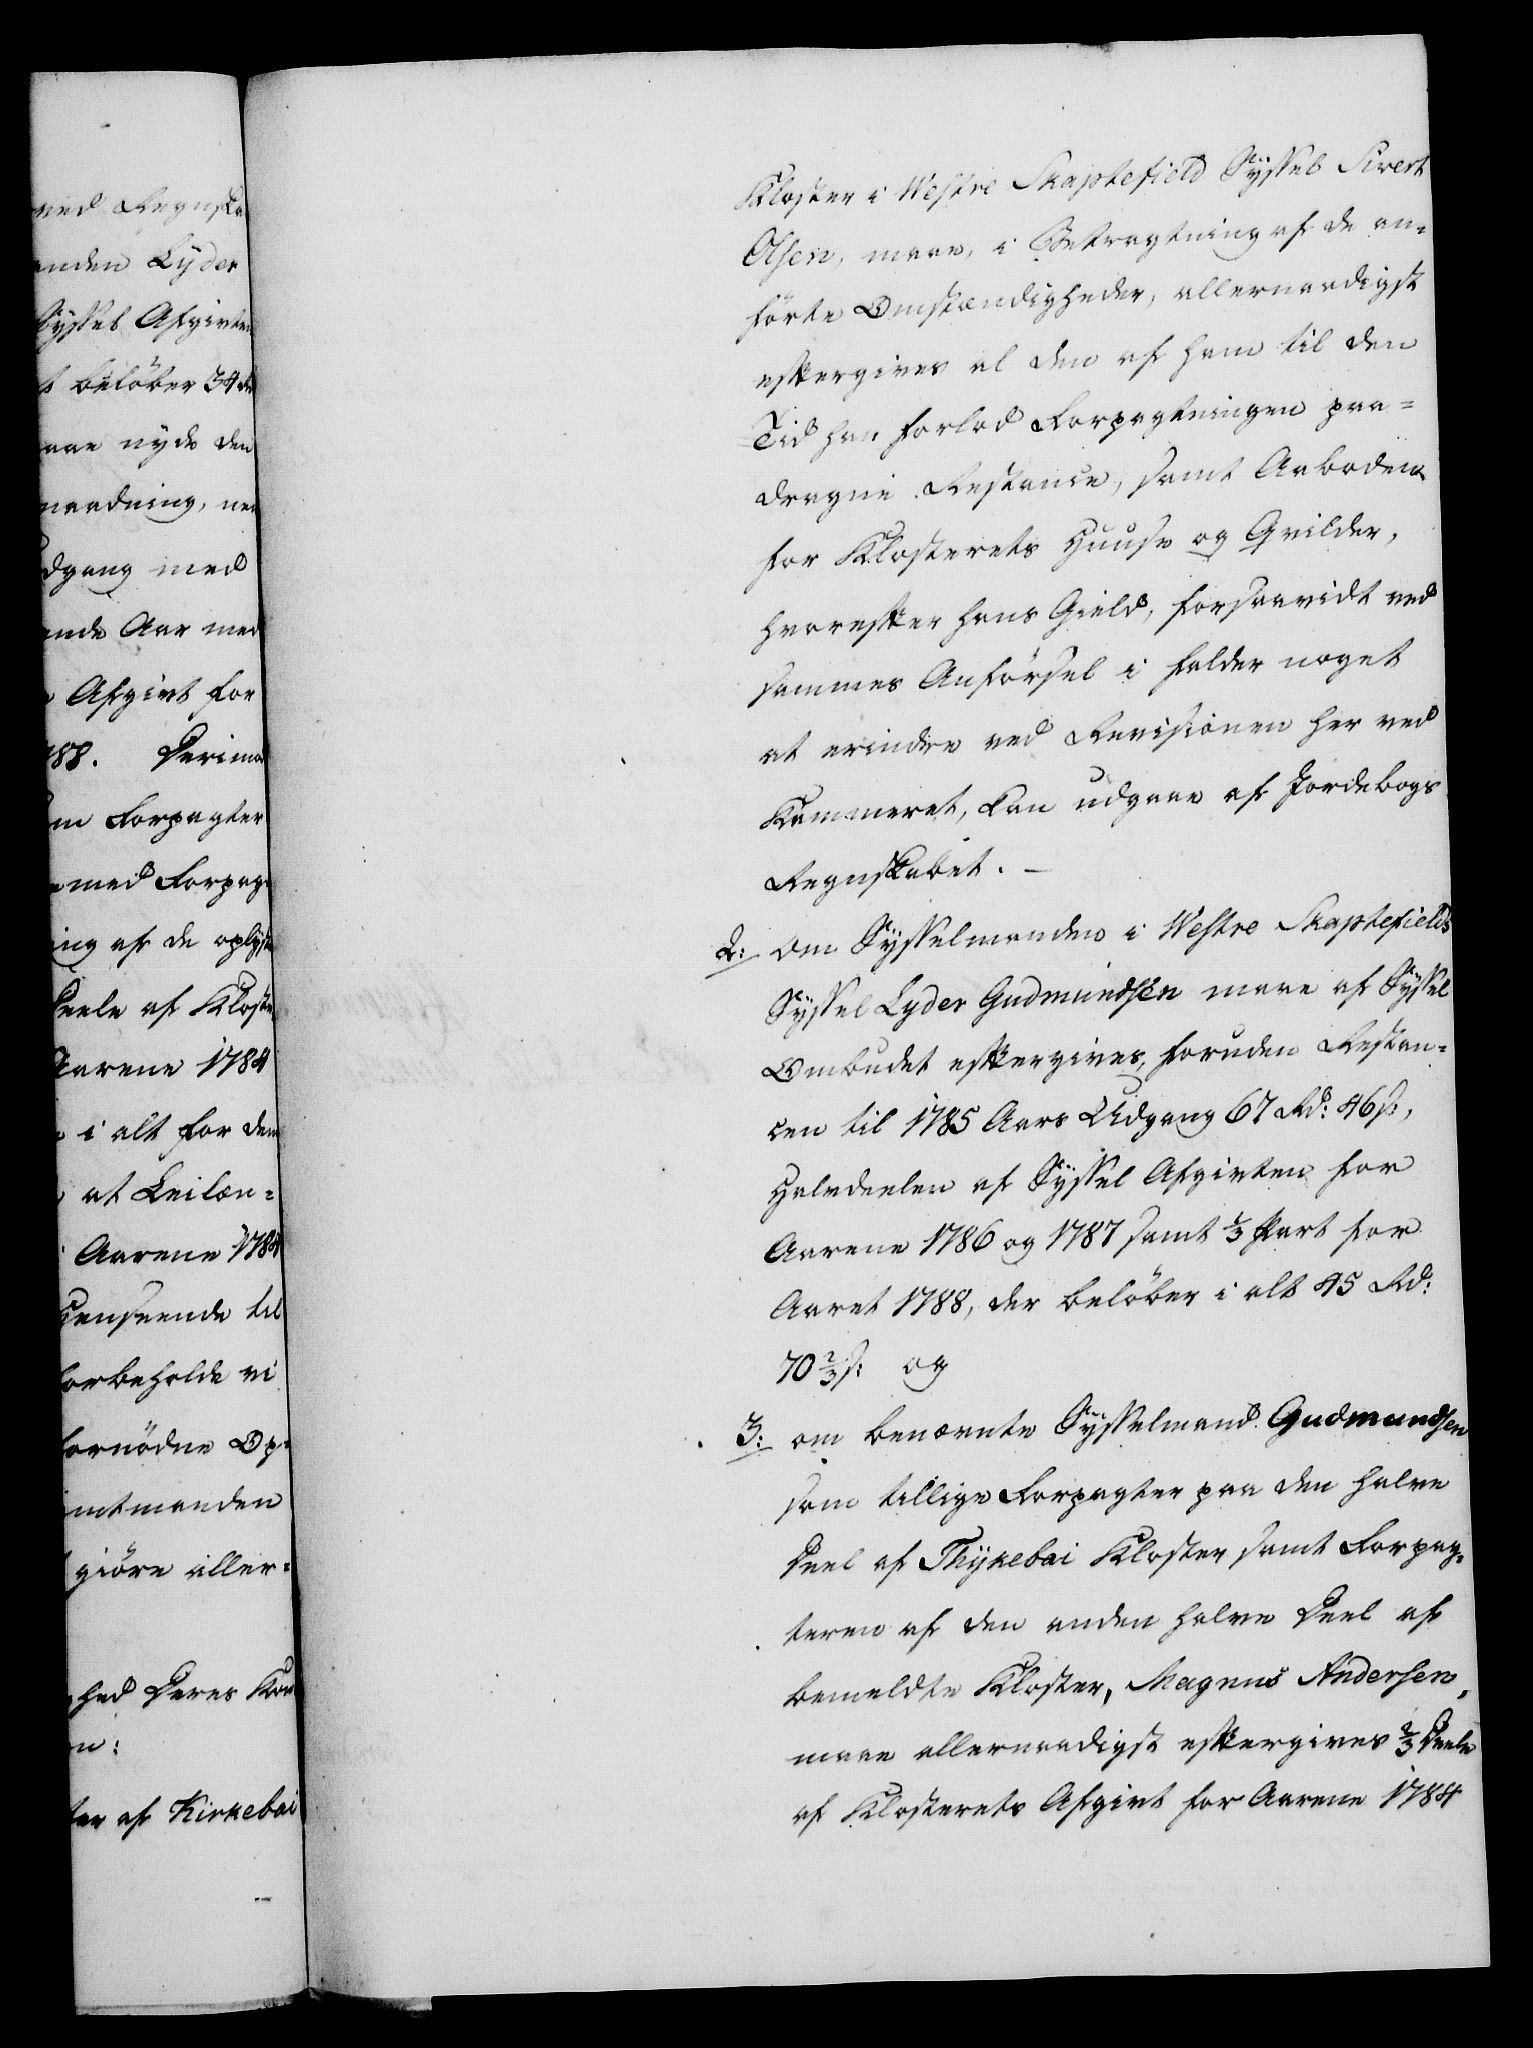 ved Regnska
anden Lyder
Syssel Afgivten
t beløber 34 rd
aae nyde den
naadning, ne
dgang med
ende Aar med
Afgivt for
788. Derimod
em Forpagter
med Forpag-
ing af de oplyste
Deele af Kloste
Aarene 1784
i alt for dem
at Leilæn-
Aarene 1784
Henseende til
forbeholde vi
fornødne Op-
mtmanden
giøre aller-
hed Deres Kon
n:
ter af Kirkebai
Kloster i Westre Skaptefield Syssel Sivert
Olsen, maae, i Betragtning af de an-
førte Omstændigheder, allernaadigst
eftergives al den af ham til den
Tid han forlod Forpagtningen paa-
dragne Restance, samt Aaboden
for Klosterets Huuse og Qvilder,
hvorefter hans Gield, forsaavidt ved
sammes Anførsel i falder noget
at erindre ved Revisionen her ved
Kammeret, kan udgaae af Jordebogs
Regnskabet. —
2: Om Sysselmanden i Westre Skaptefields
Syssel Lyder Gudmundsen maae af Syssel
Ombudet eftergives, foruden Restan-
cen til 1785 Aars Udgang 67 Rd: 46 s,
Halvdeelen af Syssel Afgivten for
Aarene 1786 og 1787 samt 1/3 Part for
Aaret 1788, der beløber i alt 45 Rd:
70 2/3 s: og
3: om benævnte Sysselmand Gudmundsen
som tillige Forpagter paa den halve
Deel af Thykebai Kloster samt Forpag-
teren af den anden halve Deel af
bemeldte Kloster, Magnus Andersen,
maae allernaadigst eftergives 2/3 Deele
af Klosterets Afgivt for Aarene 1784